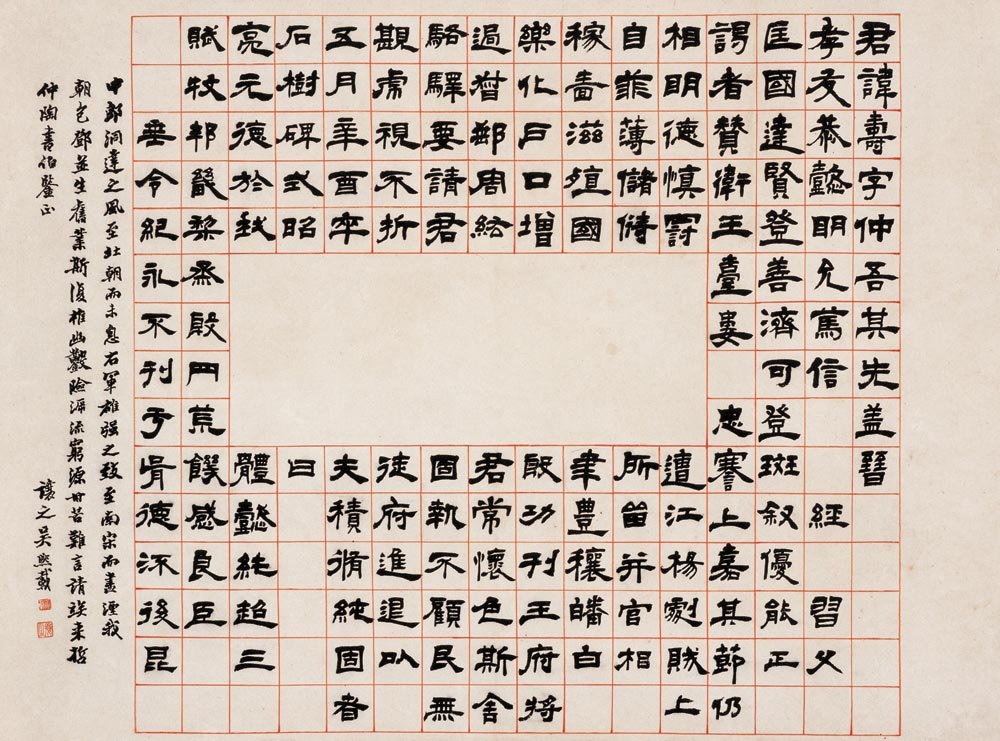 君諱壽字仲吾其先盖晉
孝友恭懿明允篤信 經 習父
匡國達賢登善濟可登斑叙優能正
謁者贊衛王臺婁忠謇上嘉其節仍
相明德慎罰 遭江楊劇賊上
自菲薄儲偫 所畄并官相
稼嗇滋殖國 聿豐穰皤白
樂化戶口增 殷功刊王府將
過咎鄰周紜 君常懷色斯舍
駱驛要請君 固執不顧民無
觀虎視不折 徒府進退以
五月辛酉卒 夫積脩純固者
石樹碑式昭 曰
亮元德於我 體懿純超三
賦牧邦畿黎烝殷罔荒饑感良臣
垂令紀永不刊于胥德流後昆
中郎洞達之風至北朝而未息右軍雄強之致至南宋而盡湮我
朝包鄧並生舊業斯復椎幽鑿險溯流窮源甘苦難言請俟來哲
仲陶書伯鑒正
讓之吳熙載